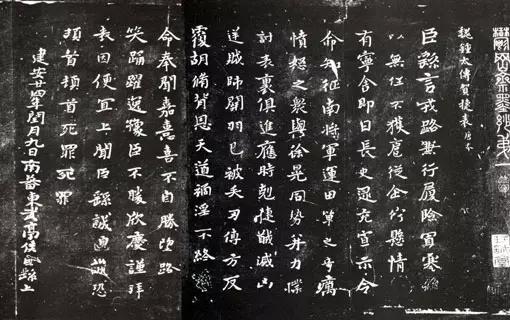 魏鍾太傅賀捷表
臣繇言戎路兼行履險冒寒
以無任不獲扈從企佇懸情
有寧舍即日長史逯充宣示令
命知征南將軍運田單之奇厲
憤怒之眾與徐晃同勢并力撲
討表裏俱進應時剋捷馘滅凶
逆賊帥關羽已被矢刃傅方反
覆胡脩背恩天道禍淫不終
命奉聞嘉憙喜不自勝望路
笑踴躍逸豫臣不勝欣慶謹拜
表因便宜上聞臣繇誠惶誠恐
頓首頓首死罪死罪
建安廿四年閏月九日南蕃東武亭侯臣繇上